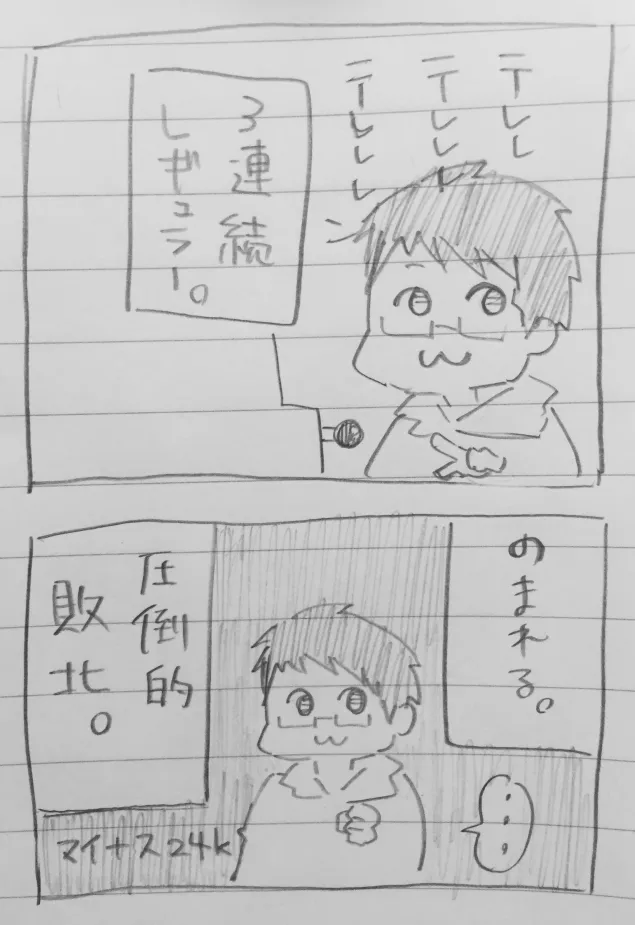 テレレ
テレレレ
テレレレ
3連続
レギュラー。
のまれる。
圧倒的
敗北。
マイナス24k